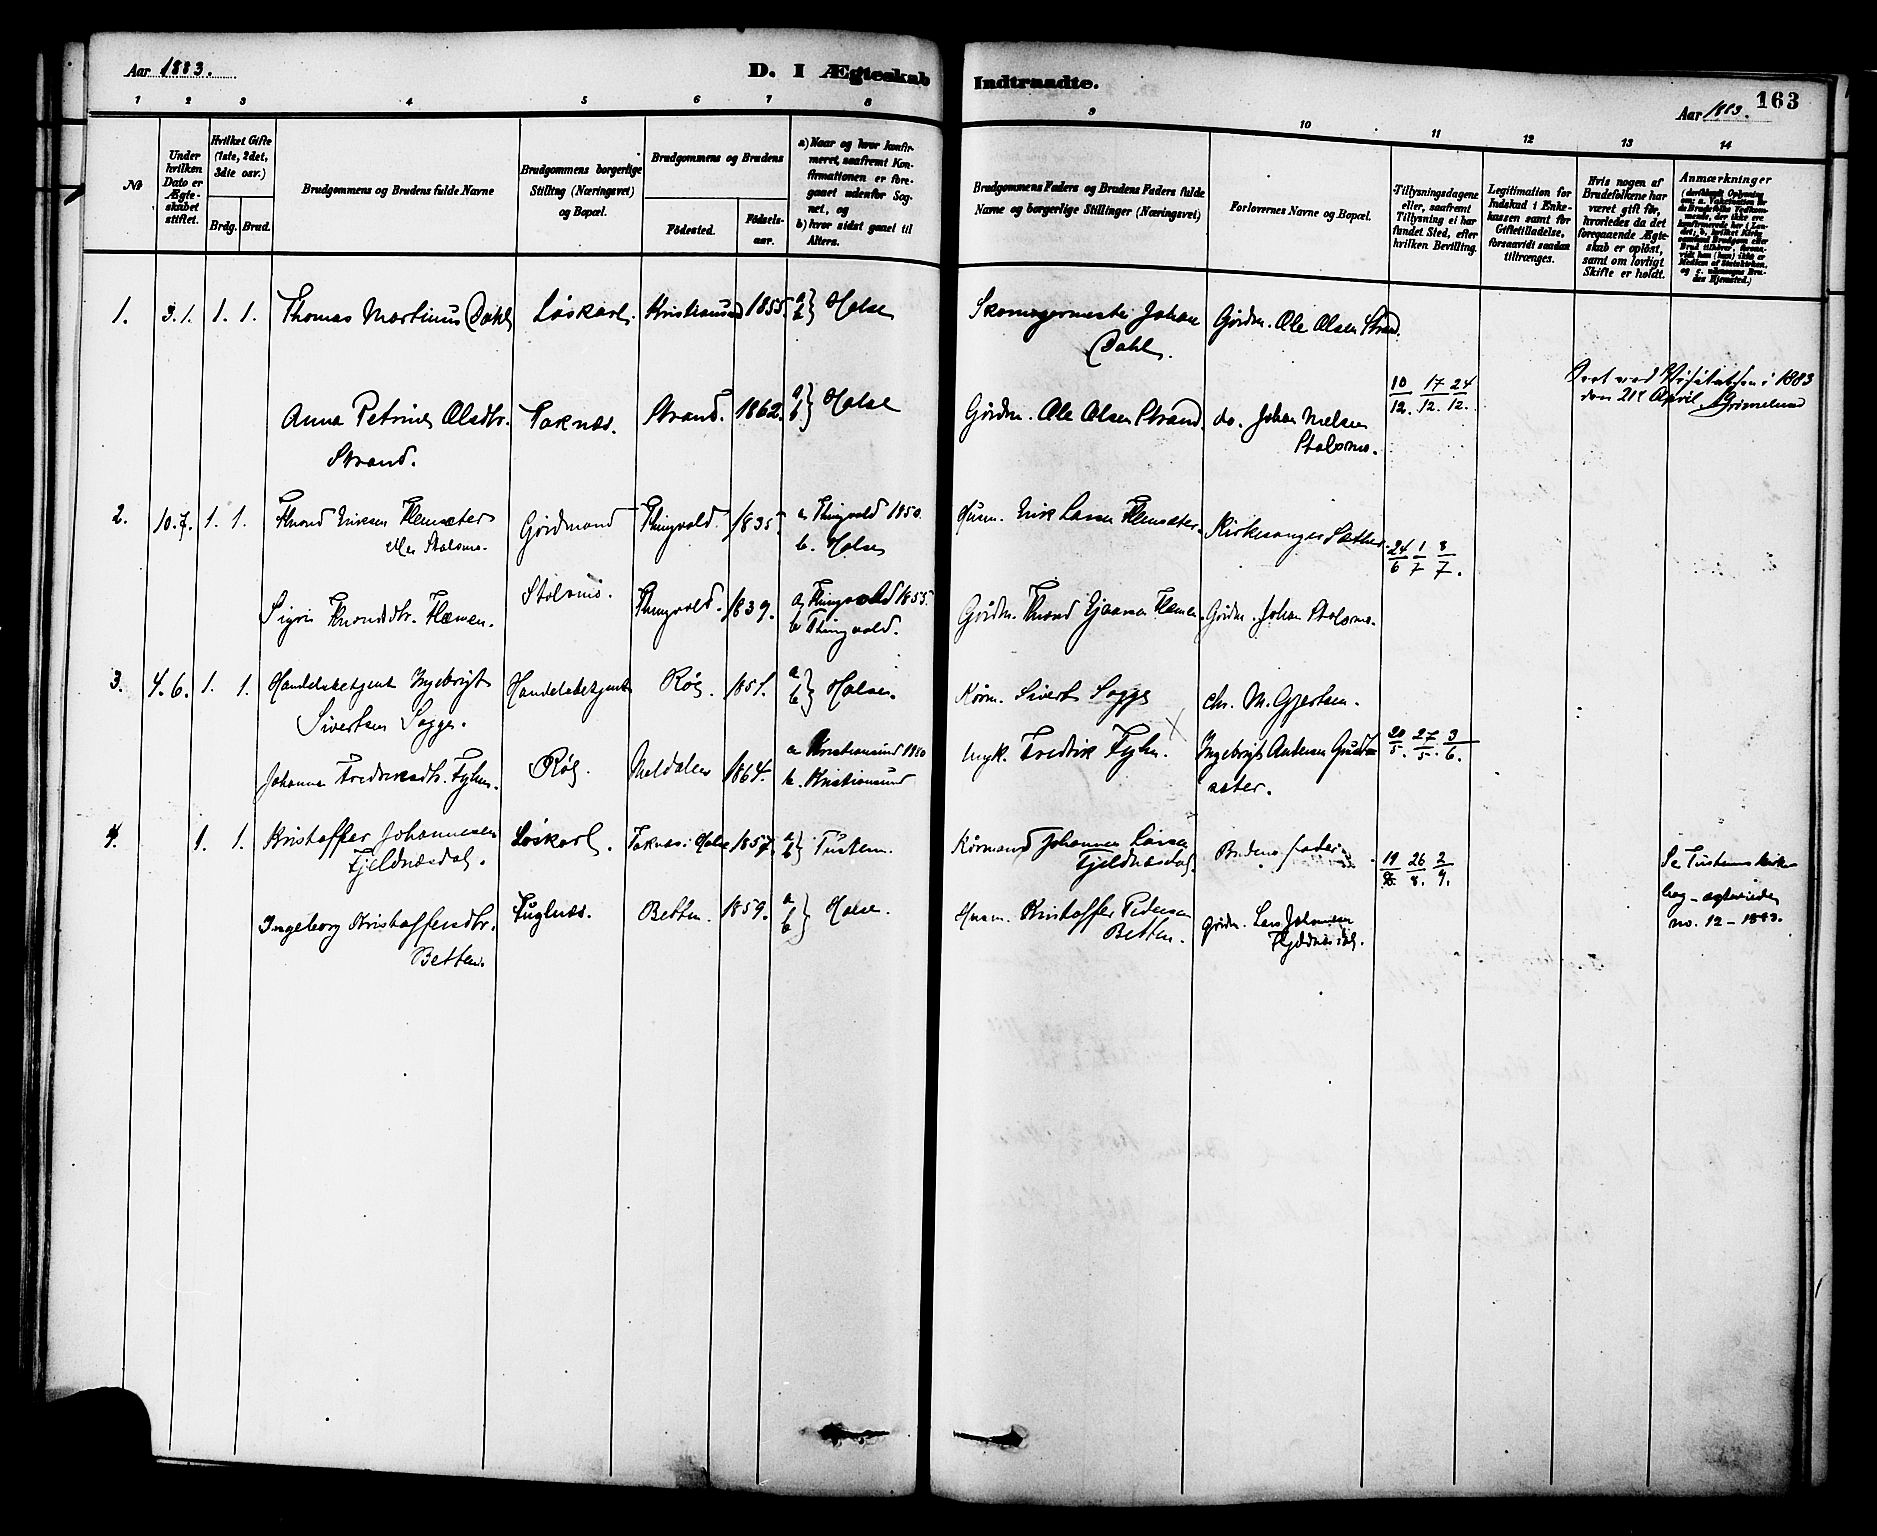 Aar 1883.
D. I Ægteskab Indtraadte.
163
Aar 1883.
1 2 3 4 5 6 7 8 9 10 11 12 13 14
№
Under hvilken Dato er Ægteskabet stiftet.
Hvilket Gifte (1ste, 2det, 3die osv.)
Brdg. Brud.
Brudgommens og Brudens fulde Navne
Brudgommens borgerlige Stilling (Næringsvei) og Bopæl.
Brudgommens og Brudens
Födested.
Födselsaar.
a) Naar og hvor konfirmeret, saafremt Konfirmationen er foregaaet udenfor Sognet, og
b) hvor sidst gaaet til Alters.
Brudgommens Faders og Brudens Faders fulde Navne og borgerlige Stillinger (Næringsvei)
Forlovernes Navne og Bopæl.
Tillysningsdagene eller, saafremt Tillysning ei har fundet Sted, efter hvilken Bevilling.
Legitimation for Indskud i Enkekassen samt for Giftetilladelse, forsaavidt saadan tiltrænges.
Hvis nogen af Brudefolkene har været gift för, hvorledes da det foregaaende Ægteskab er oplöst, samt om lovligt Skifte er holdt.
Anmærkninger
1. 3.1. 1. 1. Thomas Martinus Dahl Løskarl. Kristiansund 1855. a b} Halse Skomagermester Johan Dahl. Gårdm. Ole Olsen Strand.
Anna Petrine Olsdtr. Strand. Taknæs. Strand. 1862. a b} Halse Gårdm. Ole Olsen Strand. do. Johan Nielsen Stolsmo.
10/12. 17/12. 24/12.
Seet ved Visitatsen i 1883
den 21 April Grimelund
2. 10.7. 1. 1. Thrond Eriksen Flemsæter eller Stolsmo. Gårdmand Thingvold. 1835 a Thingvold 1850. b. Halse Husm. Erik Larsen Flemsæter. Kirkesanger Sæther
24/6 1/7 8/7.
Sigri Thronddtr. Flemen. Stolsmo. Thingvold. 1839. a Thingvold 1855. b Thingvold. Gårdm. Thrond Flemen. Gårdm. Johan Stolsmo.
3. 4.6. 1. 1. Handelsbetjent Ingebrigt Sivertsen Sogge. Handelsbetjent Røe. 1851. a b} Halse. Kårm. Sivert Sogge chr. M. Gjertsen.
Johanna Fredriksdtr. Fyhn. Røe. Meldalen 1864. a Kristiansund 1880 b. Kristiansund Fredrik Fyhn. Ingebrigt Andersen
20/5. 27/5. 3/6.
4. 1. 1. Kristoffer Johannesen Fjeldnæsdal. Løskarl. Taknæs i Halse 1857. a b} Tustern. Kårmand Johannes Larsen Fjeldnæsdal. Brudens fader
19/8. 26/8. 2/9.
Se Tusterns kirkebog
no. 12 – 1883.
Ingeborg Kristoffersdtr. Betten. Fuglnæs. Betten. 1859. a b} Halse. Husm. Kristoffer Pedersen Betten. Gårdm. Lars Johannesen Fjeldnæsdal.